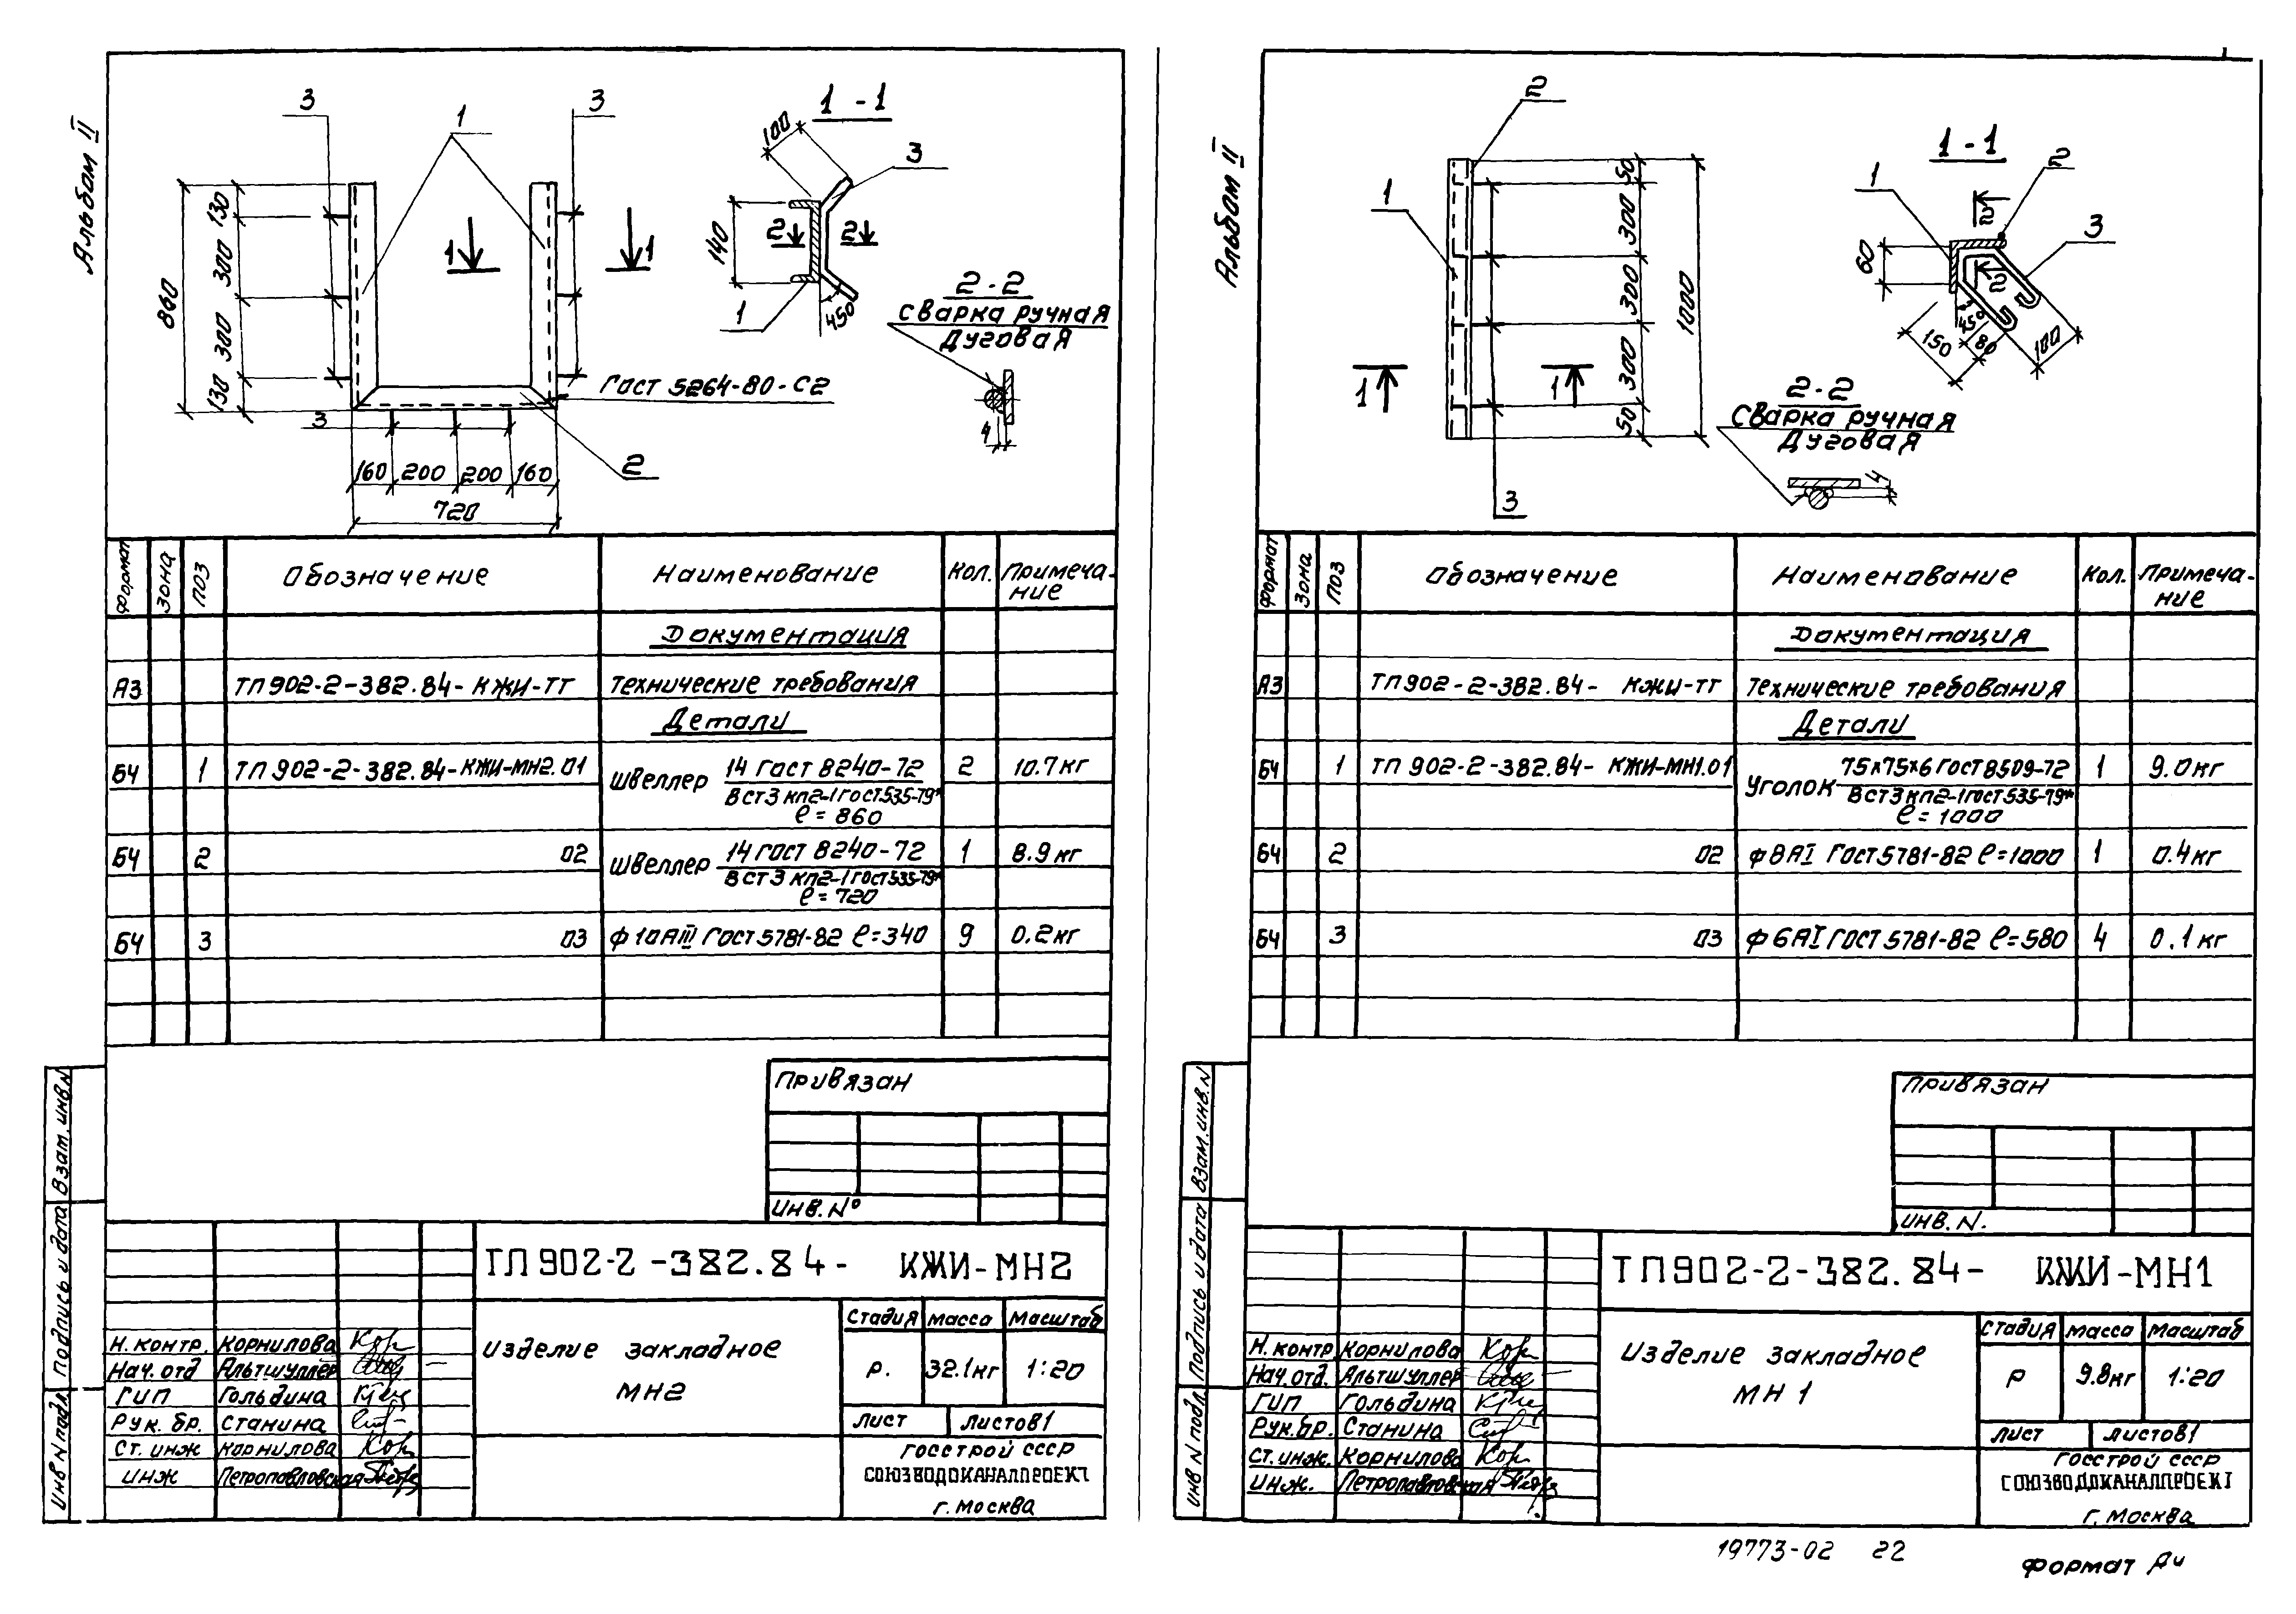 Альбом II
3
1
3
1-1
100
3
860
130
300
300
130
1
1
140
2
2
1
45°
2-2
Сварка ручная
Дуговая
4
ГОСТ 5264-80-С2
3
2
160 200 200 160
720
Формат Зона Поз Обозначение Наименование Кол. Примеча-
ние
Документация
А3 ТП902-2-382.84-КЖИ-ТТ Технические требования
Детали
БЧ 1 ТП 902-2-382.84-КЖИ-МН2.01 Швеллер 14 ГОСТ 8240-72 2 10.7кг
ВСт3 кп2-1 ГОСТ535-79*
ℓ=860
БЧ 2 02 Швеллер 14 ГОСТ 8240-72 1 8.9 кг
ВСт3 кп2-1 ГОСТ535-79*
ℓ=720
БЧ 3 03 ф10АIII ГОСТ 5781-82 ℓ=340 9 0.2кг
Привязан
Инв.№
Взам.инв.N
Подпись и дата
Инв N подл.
ТП902-2-382.84- КЖИ-МН2
Н.контр. Корнилова
Нач.отд Альтшуллер
ГИП Гольдина
Рук.бр. Станина
Ст.инж Корнилова
инж Петропавловская
Изделие закладное
МН2
Стадия Масса Масштаб
Р. 32.1кг 1:20
Лист Листов1
Госстрой СССР
СОЮЗВОДОКАНАЛПРОЕКТ
г. Москва
Альбом II
2
1
50
300
300
300
50
1000
1
1
3
1-1
1
2
2
3
60
2
45°
150
80
100
2-2
Сварка ручная
Дуговая
4
Формат Зона Поз Обозначение Наименование Кол. Примеча-
ние
Документация
А3 ТП902-2-382.84- КЖИ-ТТ Технические требования
Детали
БЧ 1 ТП 902-2-382.84- КЖИ-МН1.01 Уголок 75х75х6 ГОСТ8509-72 1 9.0кг
ВСт3 кп2-1 ГОСТ535-79*
ℓ=1000
БЧ 2 02 ф8АI ГОСТ5781-82 ℓ=1000 1 0.4кг
БЧ 3 03 ф6АI ГОСТ5781-82 ℓ=580 4 0.1 кг
Привязан
Инв.N.
Взам.инв.N
Подпись и дата
Инв N подл.
ТП902-2-382.84- КЖИ-МН1
Н.контр Корнилова
Нач.отд. Альтшуллер
ГИП Гольдина
Рук.бр. Станина
Ст.инж. Корнилова
инж. Петропавловская
Изделие закладное
МН 1
Стадия Масса Масштаб
Р 9.8кг 1:20
Лист Листов1
Госстрой СССР
СОЮЗВОДОКАНАЛПРОЕКТ
г. Москва
19773-02 22
Формат А4